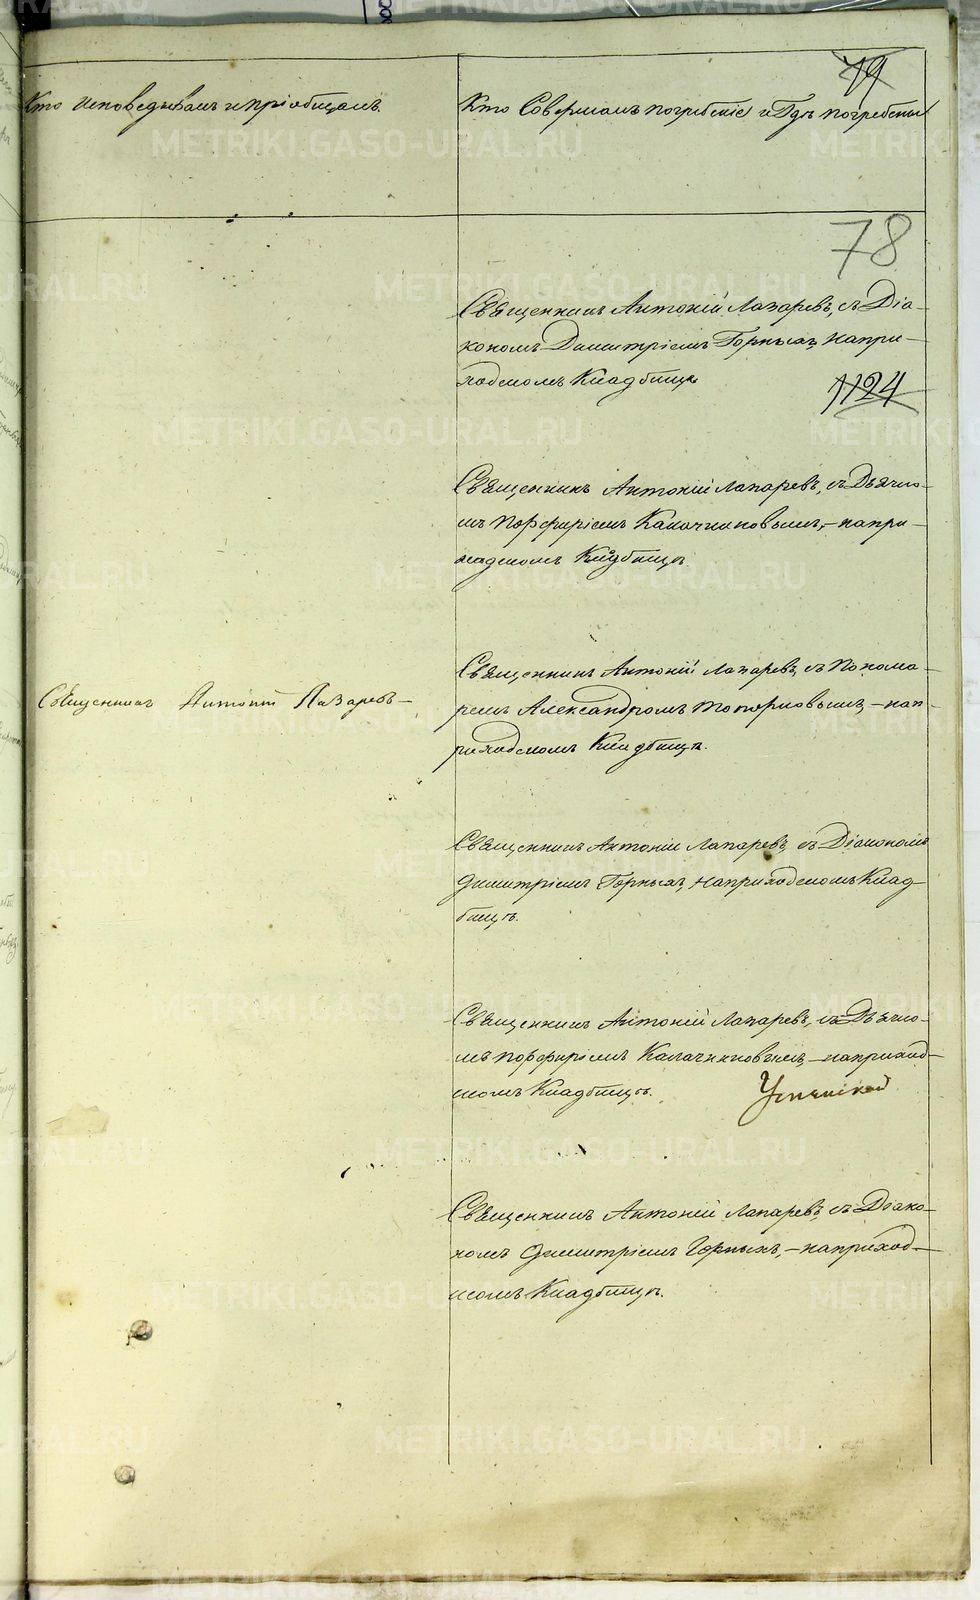 79
Кто исповедывалъ и пріобщалъ
Кто Совершалъ погребеніе и Гдѣ погребены
78
Священникъ Антоній Лазаревъ, съ Діа-
кономъ Димитріемъ Горныхъ, на при-
ходскомъ Кладбищѣ
1124
Священникъ Антоній Лазаревъ, съ Дьячко-
мъ Порфиріемъ Калачниковымъ, – на при-
ходскомъ Кладбищѣ.
Священникъ Антоній Лазаревъ, съ Понома-
ремъ Александромъ Топорковымъ, – на п-
риходскомъ Кладбищѣ.
Священникъ Антоній Лазаревъ –
Священникъ Антоній Лазаревъ, съ Діакономъ
Димитріемъ Горныхъ, на приходскомъ Клад-
бищѣ.
Священникъ Антоній Лазаревъ, съ Дьячко-
мъ Порфиріемъ Калачниковымъ, – на приход-
скомъ Кладбищѣ.
Священникъ Антоній Лазаревъ, съ Діако-
номъ Димитріемъ Горныхъ, – на приход-
скомъ Кладбищѣ.
METRIKI.GASO-URAL.RU